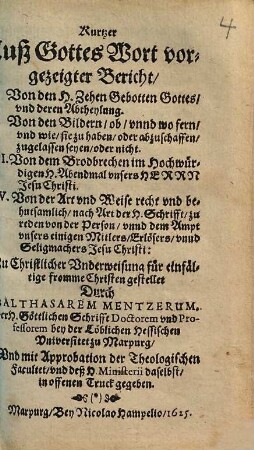 4
Kurtzer
Auß Gottes Wort vor-
gezeigter Bericht/
Von den H. Zehen Gebotten Gottes/
vnd deren Abtheylung.
Von den Bildern/ ob/ vnnd wo fern/
vnd wie/ sie zu haben/ oder abzuschaffen/
zugelassen seyen/ oder nicht.
I. Von dem Brodbrechen im Hochwür-
digen H. Abendmal vnsers HERRN
Jesu Christi.
V. Von der Art vnd Weise recht vnd be-
hutsamlich/ nach Art der H. Schrifft/ zu
reden von der Person/ vnnd dem Ampt
vnsers einigen Mitlers/ Erlösers/ vnnd
Seligmachers Jesu Christi:
Zu Christlicher Vnderweisung für einfäl-
tige fromme Christen gestellet
Durch
BALTHASAREM MENTZERUM,
der H. Göttlichen Schrifft Doctorem vnd Pro-
fessorem bey der Löblichen Hessischen
Vniversitet zu Marpurg/
Vnd mit Approbation der Theologischen
Facultet/ vnd deß H. Ministerii daselbst/
in offenen Truck gegeben.
(*)
Marpurg/ Bey Nicolao Hampelio/ 1625.